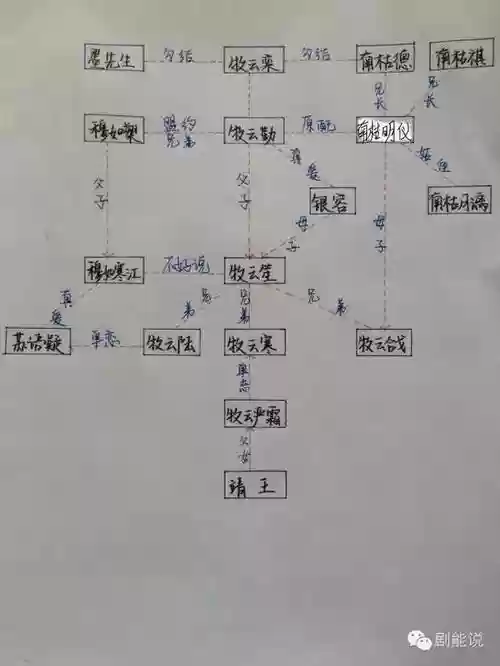 墨先生 勾结 牧云栾 勾结 南枯德 南枯祺
兄长 兄长
穆如槊 盟约兄弟 牧云勤 原配 南枯明仪
真爱 姑侄
父子 父子 银容 南枯月漓
母子 母子
穆如寒江 不好说 牧云笙
真爱 兄弟 兄弟 兄弟
苏语凝 单恋 牧云陆 牧云寒 牧云合戈
单恋
牧云严霜
父女
靖王
剧能说